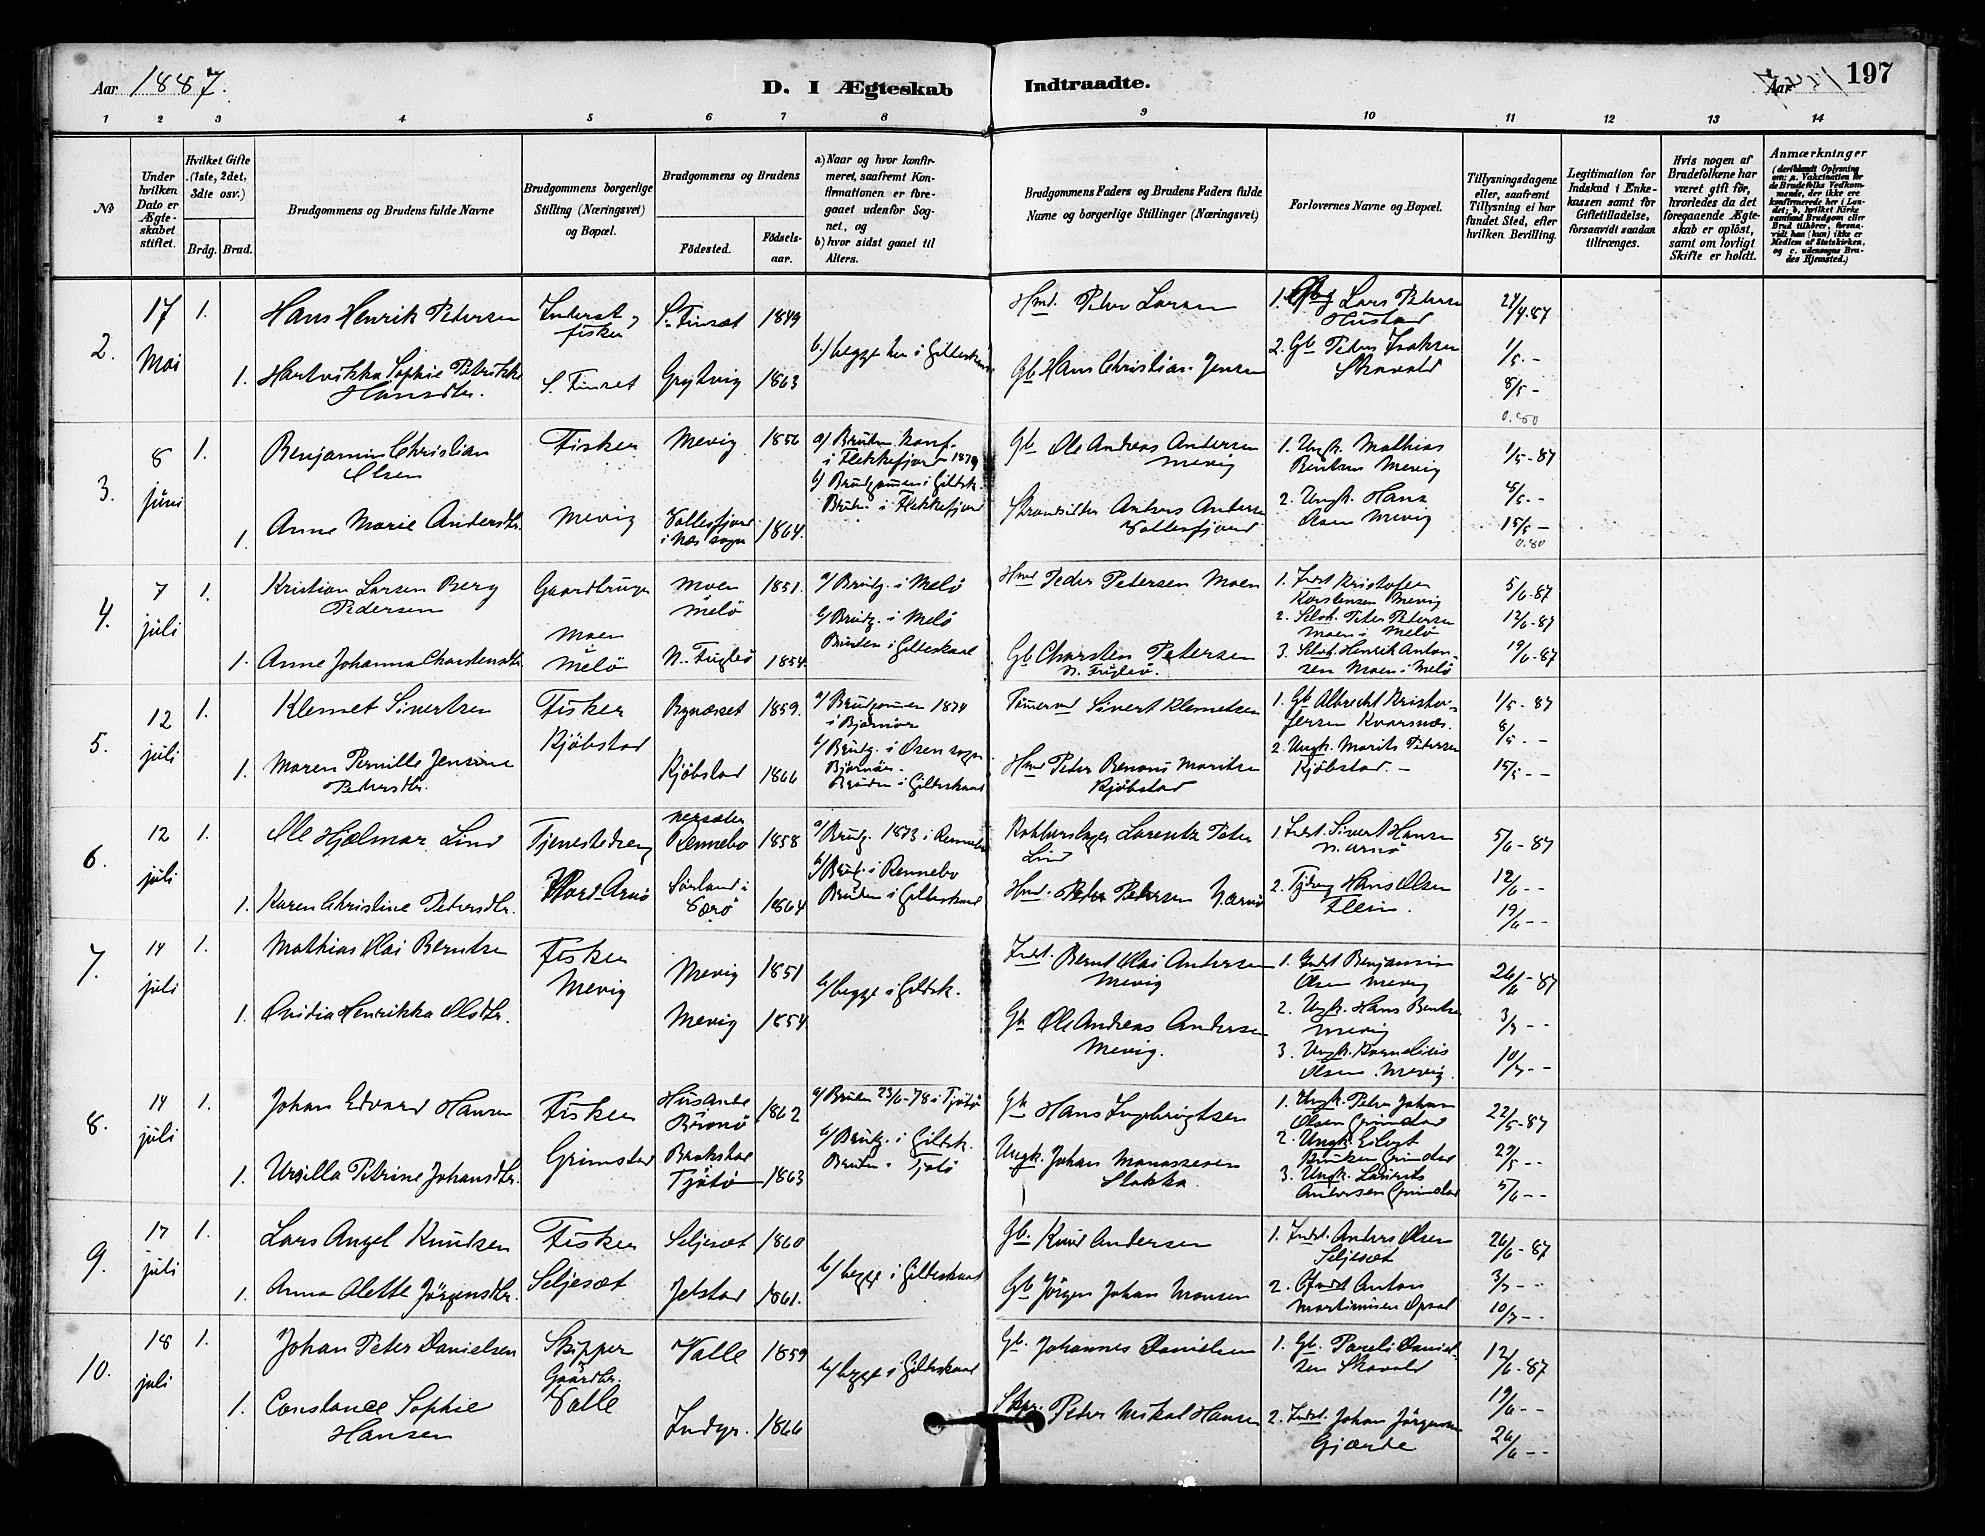 Aar 1887.
D. I Ægteskab Indtraadte.
Aar
197
1 2 3 4 5 6 7 8 9 10 11 12 13 14
№
Under hvilken Dato er Ægteskabet stiftet.
Hvilket Gifte (1ste, 2det, 3die osv.)
Brdg. Brud.
Brudgommens og Brudens fulde Navne
Brudgommens borgerlige Stilling (Næringsvei) og Bopæl.
Brudgommens og Brudens
Fødested.
Fødselsaar.
a) Naar og hvor konfirmeret, saafremt Konfirmationen er foregaaet udenfor Sognet, og
b) hvor sidst gaaet til Alters.
Brudgommens Faders og Brudens Faders fulde Navne og borgerlige Stillinger (Næringsvei)
Forlovernes Navne og Bopæl.
Tillysningsdagene eller, saafremt Tillysning ei har fundet Sted, efter hvilken Bevilling.
Legitimation for Indskud i Enkekassen samt for Giftetilladelse, forsaavidt saadan tiltrænges.
Hvis nogen af Brudefolkene har været gift før, hvorledes da det foregaaende Ægteskab er opløst, samt om lovligt Skifte er holdt.
Anmærkninger
(deriblandt Oplysning om: a. Vaksination for de Brudefolks Vedkommende, der ikke ere konfirmerede her i Landet; b. hvilket Kirkesamfund Brudgom eller Brud tilhører, forsaavidt han (hun) ikke er Medlem af Statskirken, og c. udensogns Brudes Hjemsted.)
2. 17 Mai 1. Hans Henrik Petersen
Inderst og fisker S. Finsæt 1849
b.) begge her i Gildeskaal
Hmd. Peter Larsen
1. Lars Petersen Hustad
24/4.87
1. Hartvikka Sophie Petrikke Hansdtr.
S. Finset 1863
Gb Hans Christian Jensen
2. Gb Peder Isaksen Skavold
1/5. -
8/5 -
0.80
3. 8 juni 1. Benjamin Christian Olsen
Fisker Mevig 1856
a) Bruden konf. i Flekkefjord 1879
b) Brudgommen i Gildsk.
Bruden i Flekkefjord
Gb Ole Andreas Andersen Mevig
1. Ungk. Mathias Berntsen Mevig
1/5-87
1. Anne Marie Andersdtr.
Mevig i Næs sogn 1864.
Strandsidder Anders Andersen
2. Ungk. Hans Olsen Mevig
15/5 -
0.80
4. 7 juli 1. Kristian Larsen Berg Pedersen
Gaardbruger Moen Melö 1851.
a/ Brudg. i Melö
b/ Brudg. i Melö
Bruden i Gildeskaal
Hmd Peder Petersen Moen
1. Indst Kristofer Karstensen Mevig
5/6.87
2. Selvst. Peter Petersen Moen i Melö
12/6-87
1. Anne Johanna Charstensdtr.
Moen i Melö N. Fuglö 1854.
Gb Charsten Petersen N. Fuglö.
3. Selvst Henrik Antonsen Moen i Melö
19/6-87
5. 12 juli 1. Klemet Sivertsen
Fisker Kjöbstad Bynæsset 1859.
a/ Brudgommen 1874 i Bjørnör
b/ Brudg. i Osen sogn Bjørnör.
Bruden i Gildeskaal
Sivert Klemetsen
1. Gb Albrecht Kristoffersen Kvarsnæs.
1/5-87
8/5. -
1. Maren Pernille Jensine Pedersdtr.
Kjöbstad 1866
Hmd Peter Benoni Maritsen Kjöbstad
2. Ungk. Marits Petersen Kjöbstad. -
15/5 - -
6. 12 juli 1. Ole Hjalmar Lind
Tjenestedreng Nord Arnö Rennebo 1858
a/ Brudg. 1873 i Rennebo
b/ Brudg. i Rennebo
Bruden i Gildeskaal
Lorentz Peter Lind
1. Indst. Sivert Hansen N. Arnö
5/6-87
1. Karen Christine Petersdtr.
Sörland i Værö 1864
Hmd. Peder Petersen N. Arnö
2. Tjdreng Hans Olsen Fleina.
12/6 - -
19/6 - -
7. 14 juli 1. Mathias Olai Berntsen
Fisker Mevig Mevig 1851
b/ begge i Gildsk.
Indst. Bernt Olai Andersen Mevig
1. Indst Benjamin Olsen Mevig
26/6-87
1. Ovidia Henrikka Olsdtr.
Mevig 1854
Gb Ole Andreas Andersen Mevig.
2. Ungk. Hans Berntsen Mevig
3/7 - -
3. Ungk. Kornelius Olsen. Mevig.
10/7 - -
8. 14 juli 1. Johan Edvard Hansen
Fisker Grimstad Brönö 1862
a/ Bruden 23/6-78 i Tjötö
b/ Brudg. i Gildsk.
Bruden i Tjötö
Gb Hans Ingebrigtsen
1. Ungk. Peter Johan Olsen Grimstad
22/5-87
2. Ungk. Grimstad
29/5 - -
1. Ursilla Petrine Johansdtr.
Tjötö 1863
Ungk. Johan Manassesen Stokka.
3. Ungk. Laurits Andersen Grimstad
5/6 - -
9. 17 juli 1. Lars Angel Knudsen
Fisker Seljesæt Seljesæt 1860
b/ begge i Gildeskaal
Gb. Knud Andersen
1. Indst. Anders Olsen Seljesæt
26/6-87
1. Anna Olette Jörgensdtr.
Jelstad 1861.
Gb Jörgen Johan Monsen
2. Anton Martinusen Opsal
3/7 - -
10/7 - -
10. 18 juli 1. Johan Peter Danielsen
Skipper & Gaardbr. Valle Valle 1859
b/ begge i Gildeskaal
Gb. Johannes Danielsen
1. Gb. Pareli Danielsen Skavold
12/6-87
1. Constance Sophie Hansen
Indyr. 1866
Skpr. Peder Mikal Hansen
2. Indst. Johan Jörgensen Gjærde
19/6 - -
26/6 - -